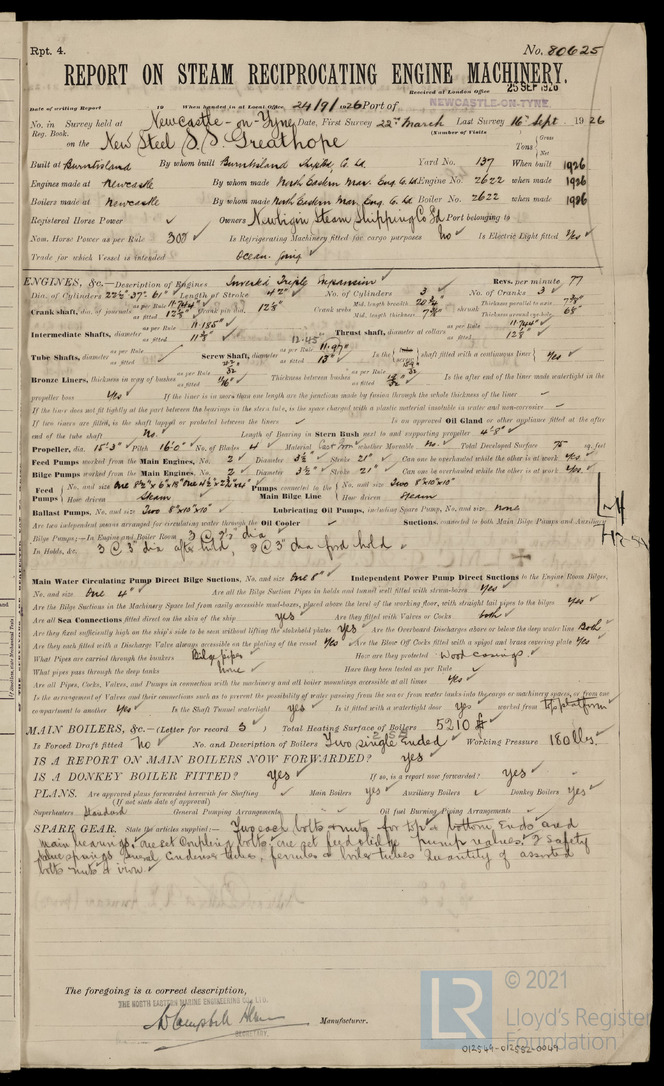 Rpt. 4. No. 80625
REPORT ON STEAM RECIPROCATING ENGINE MACHINERY.
Received at London Office 25 SEP 1926
Date of writing Report 19 When handed in at Local Office 24/9/1926 Port of NEWCASTLE-ON-TYNE
No. in Survey held at Newcastle-on-Tyne Date, First Survey 22nd March Last Survey 16th Sept 1926
Reg. Book. (Number of Visits
on the New Steel S.S. Greathope Tons { Gross Net
Built at Burntisland By whom built Burntisland Yard No. 137 When built 1926
Engines made at Newcastle By whom made North Eastern Mar. Eng. C. Ld Engine No. 2622 when made 1926
Boilers made at Newcastle By whom made North Eastern Mar. Eng. C. Ld Boiler No. 2622 when made 1926
Registered Horse Power Owners Newbigin Steam Shipping Co Ld Port belonging to
Nom. Horse Power as per Rule 302 Is Refrigerating Machinery fitted for cargo purposes No Is Electric Light fitted Yes
Trade for which Vessel is intended Ocean going
ENGINES, &c.—Description of Engines Inverted Triple Expansion Revs. per minute 77
Dia. of Cylinders 22½" 37" 61" Length of Stroke 42" No. of Cylinders 3 No. of Cranks 3
Crank shaft, dia. of journals as per Rule 11.744" as fitted Crank pin dia. Crank webs Mid. length breadth Mid. length thickness shrunk Thickness parallel to axis Thickness around eye-hole
Intermediate Shafts, diameter as per Rule 11.185" as fitted Thrust shaft, diameter at collars as per Rule 11.744" as fitted
Tube Shafts, diameter as per Rule as fitted Screw Shaft, diameter as per Rule 11.97" as fitted 13" Is the shaft fitted with a continuous liner Yes
Bronze Liners, thickness in way of bushes as per Rule as fitted Thickness between bushes as per Rule as fitted Is the after end of the liner made watertight in the
propeller boss Yes If the liner is in more than one length are the joints made by fusion through the whole thickness of the liner
If the liner does not fit tightly at the part between the bearings in the stern tube, is the space charged with a plastic material insoluble in water and non-corrosive
If two liners are fitted, is the shaft lapped or protected between the liners Is an approved Oil Gland or other appliance fitted at the after
end of the tube shaft No. Length of Bearing in Stern Bush next to and supporting propeller 4'-8"
Propeller, dia. 15'-3" Pitch 16'-0" No. of Blades 4 Material Cast Iron whether Moveable No. Total Developed Surface 75 sq. feet
Feed Pumps worked from the Main Engines, No. 2 Diameter 3½" Stroke 21" Can one be overhauled while the other is at work Yes
Bilge Pumps worked from the Main Engines, No. 2 Diameter 3½" Stroke 21" Can one be overhauled while the other is at work Yes
Feed Pumps { No. and size How driven Steam Pumps connected to the Main Bilge Line { No. and size Two 8"x10"x10" How driven Steam
Ballast Pumps, No. and size Two 8"x10"x10" Lubricating Oil Pumps, including Spare Pump, No. and size None
Are two independent means arranged for circulating water through the Oil Cooler Suctions, connected to both Main Bilge Pumps and Auxiliary
Bilge Pumps;—In Engine and Boiler Room 3 @ 3½" dia
In Holds, &c. 3 @ 3" dia after hold, 2 @ 3" dia ford hold
Main Water Circulating Pump Direct Bilge Suctions, No. and size One 8" Independent Power Pump Direct Suctions to the Engine Room Bilges,
No. and size One 4" Are all the Bilge Suction Pipes in holds and tunnel well fitted with strum-boxes Yes
Are the Bilge Suctions in the Machinery Space led from easily accessible mud-boxes, placed above the level of the working floor, with straight tail pipes to the bilges Yes
Are all Sea Connections fitted direct on the skin of the ship yes Are they fitted with Valves or Cocks both
Are they fixed sufficiently high on the ship's side to be seen without lifting the stokehold plates yes Are the Overboard Discharges above or below the deep water line Both
Are they each fitted with a Discharge Valve always accessible on the plating of the vessel Yes Are the Blow Off Cocks fitted with a spigot and brass covering plate Yes
What Pipes are carried through the bunkers Bilge pipes How are they protected Wood casings
What pipes pass through the deep tanks None Have they been tested as per Rule
Are all Pipes, Cocks, Valves, and Pumps in connection with the machinery and all boiler mountings accessible at all times Yes
Is the arrangement of Valves and their connections such as to prevent the possibility of water passing from the sea or from water tanks into the cargo or machinery spaces, or from one
compartment to another Yes Is the Shaft Tunnel watertight yes Is it fitted with a watertight door yes worked from top platform
MAIN BOILERS, &c.—(Letter for record S ) Total Heating Surface of Boilers 5210
Is Forced Draft fitted No No. and Description of Boilers Two single Ended Working Pressure 180 lbs.
IS A REPORT ON MAIN BOILERS NOW FORWARDED? yes
IS A DONKEY BOILER FITTED? yes If so, is a report now forwarded? yes
PLANS. Are approved plans forwarded herewith for Shafting Main Boilers yes Auxiliary Boilers Donkey Boilers yes
(If not state date of approval)
Superheaters Standard General Pumping Arrangements Oil fuel Burning Piping Arrangements
SPARE GEAR. State the articles supplied:— Two each bolts & nuts for top & bottom Ends and
main bearings, one set coupling bolts, one set feed & bilge pump valves, 2 safety
valve springs, several Condenser tubes, ferrules & boiler tubes. Quantity of assorted
bolts, nuts & iron.
The foregoing is a correct description,
THE NORTH EASTERN MARINE ENGINEERING CO. LTD.
Manufacturer.
SECRETARY.
© 2021
LR Lloyd's Register
Foundation
012549-012552-0049